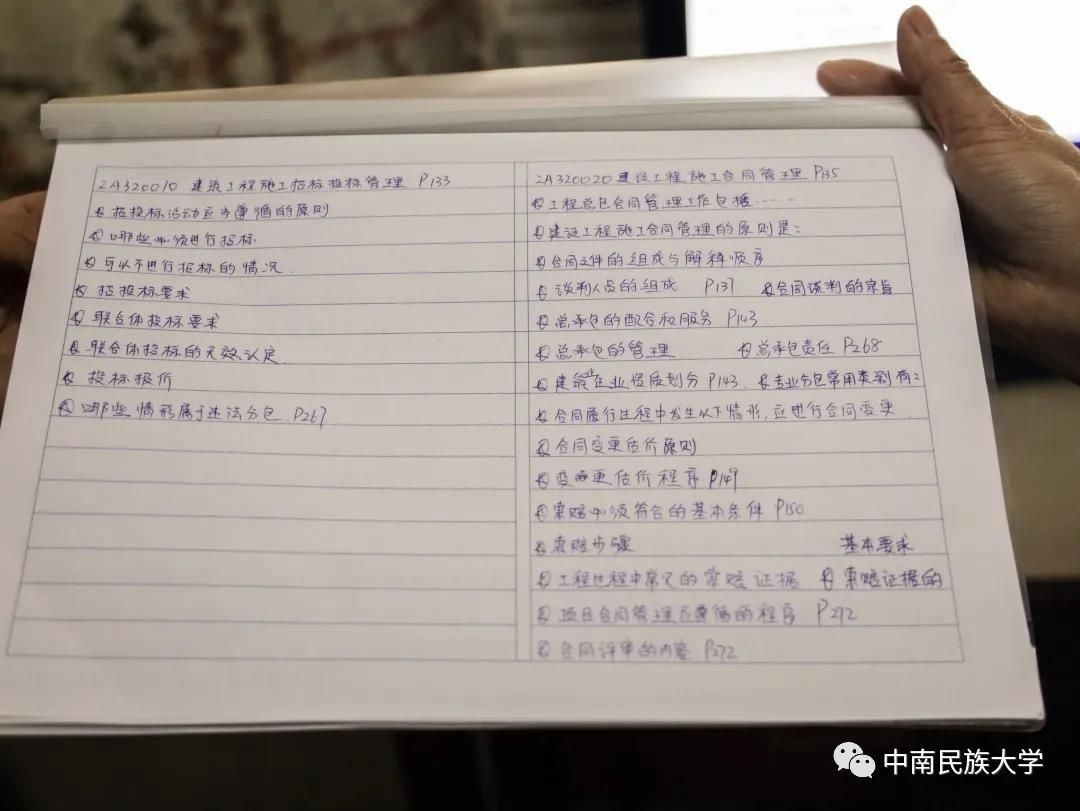 2A320010 建筑工程施工招标投标管理 P133
招投标活动应当遵循的原则
哪些必须进行招标
可以不进行招标的情况
招投标要求
联合体投标要求
联合体投标的无效认定
投标报价
哪些情形属于违法分包 P267
2A320020 建设工程施工合同管理 P135
工程总包合同管理工作包括……
建设工程施工合同管理的原则是:
合同文件的组成与解释顺序
谈判人员的组成 P137 合同谈判的宗旨
总承包的配合和服务 P143
总承包的管理 总承包责任 P268
建筑业企业资质划分 P143. 专业分包常用类别有:
合同履行过程中发生以下情形,应进行合同变更
合同变更估价原则
变更估价程序 P149
索赔必须符合的基本条件 P150
索赔步骤 基本要求
工程过程中常见的索赔证据 索赔证据的
项目合同管理应遵循的程序 P272
合同评审的内容 P272
中南民族大学